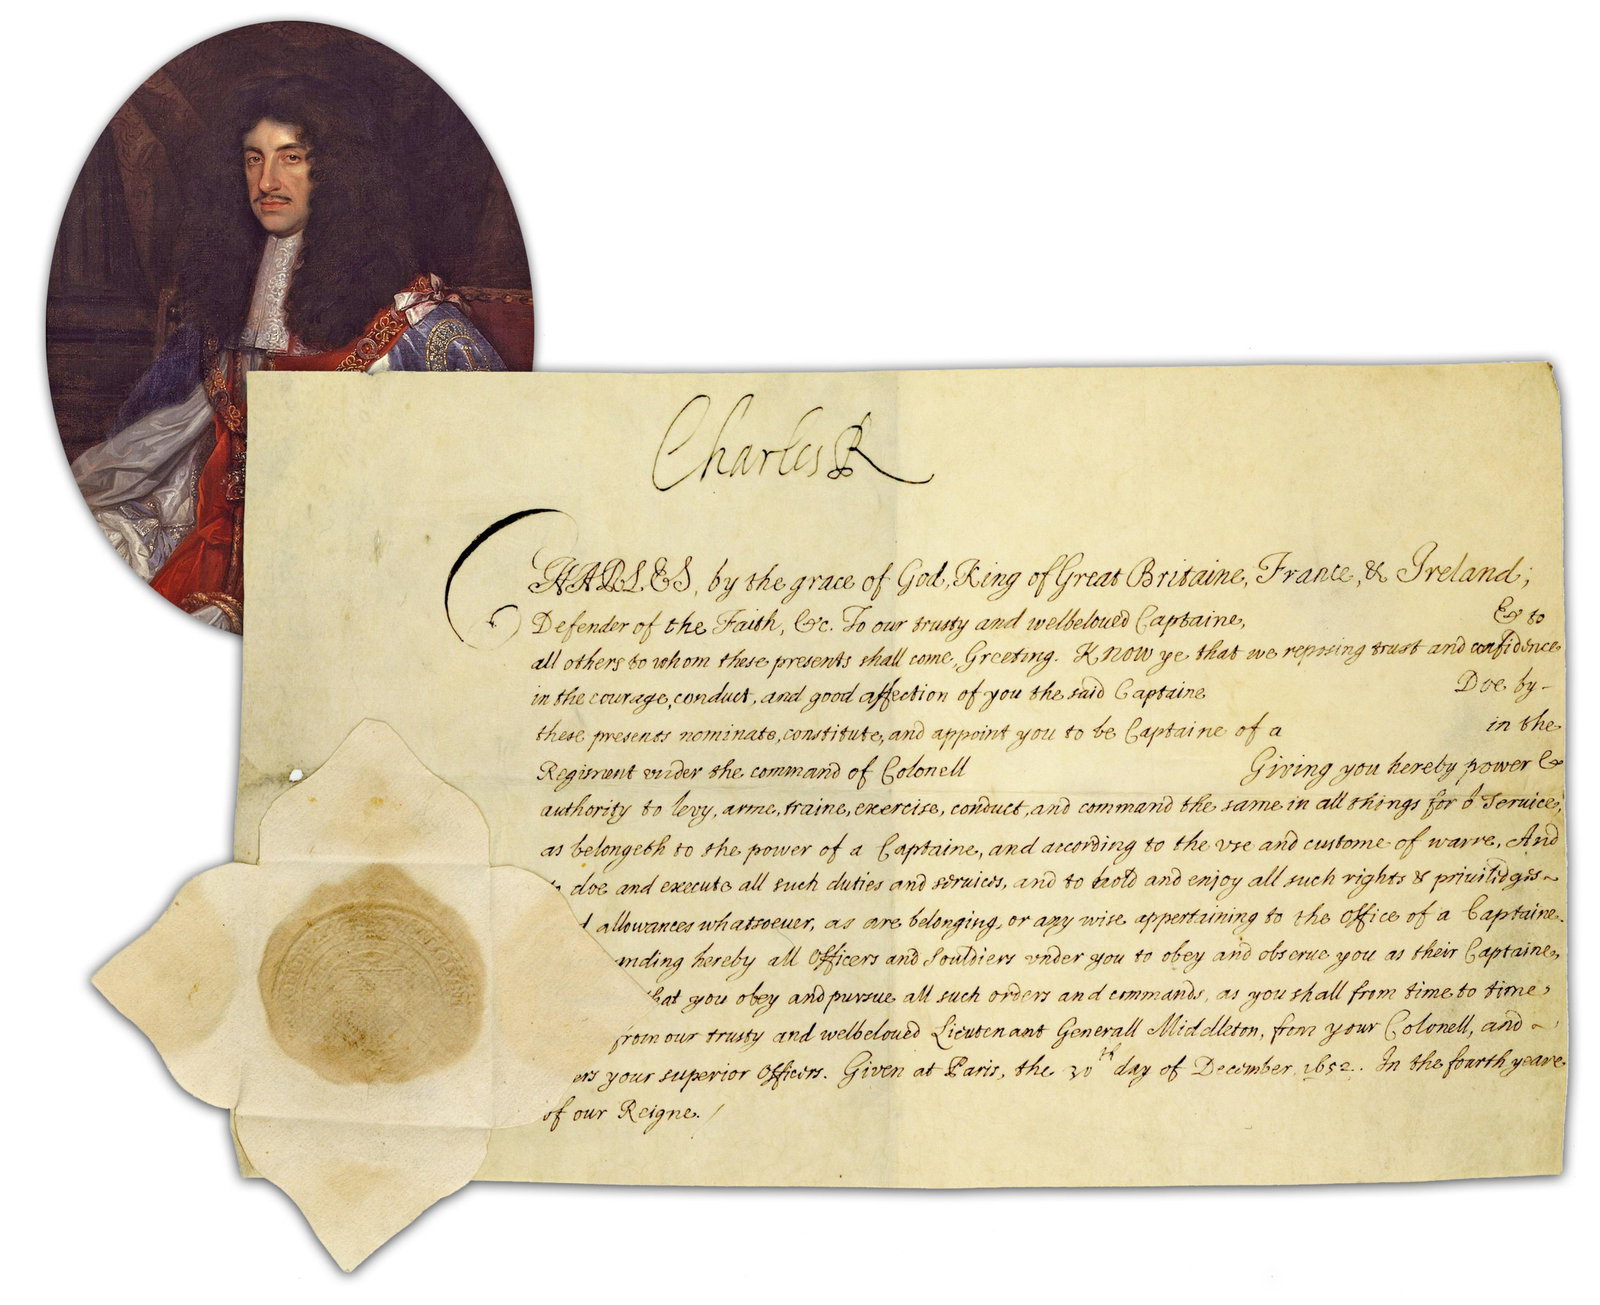 Charles R
CHARLES, by the grace of God, King of Great Britaine, France, & Ireland;
Defender of the Faith, &c. To our trusty and welbeloued Captaine, & to
all others to whom these presents shall come, Greeting. Know ye that we reposing trust and confidence
in the courage, conduct, and good affection of you the said Captaine Doe by-
these presents nominate, constitute, and appoint you to be Captaine of a in the
Regiment vnder the command of Colonell Giving you hereby power &
authority to levy, arme, traine, exercise, conduct, and command the same in all things for oʳ Seruice,
as belongeth to the power of a Captaine, and according to the vse and custome of warre, And
doe and execute all such duties and seruices, and to hold and enjoy all such rights & priuiledges~
allowances whatsoever, as are belonging, or any wise appertaining to the Office of a Captaine.
anding hereby all Officers and Souldiers vnder you to obey and obserue you as their Captaine,
that you obey and pursue all such orders and commands, as you shall from time to time,
from our trusty and welbeloued Lieutenant Generall Middleton, from your Colonell, and ~
ers your superior Officers. Given at Paris, the 30th day of December 1652. In the fourth yeare
of our Reigne. /